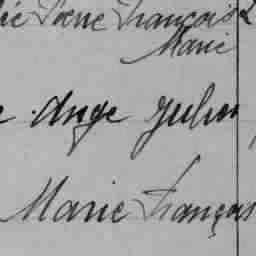 Pierre François
Marie
Ange Julien
Marie François